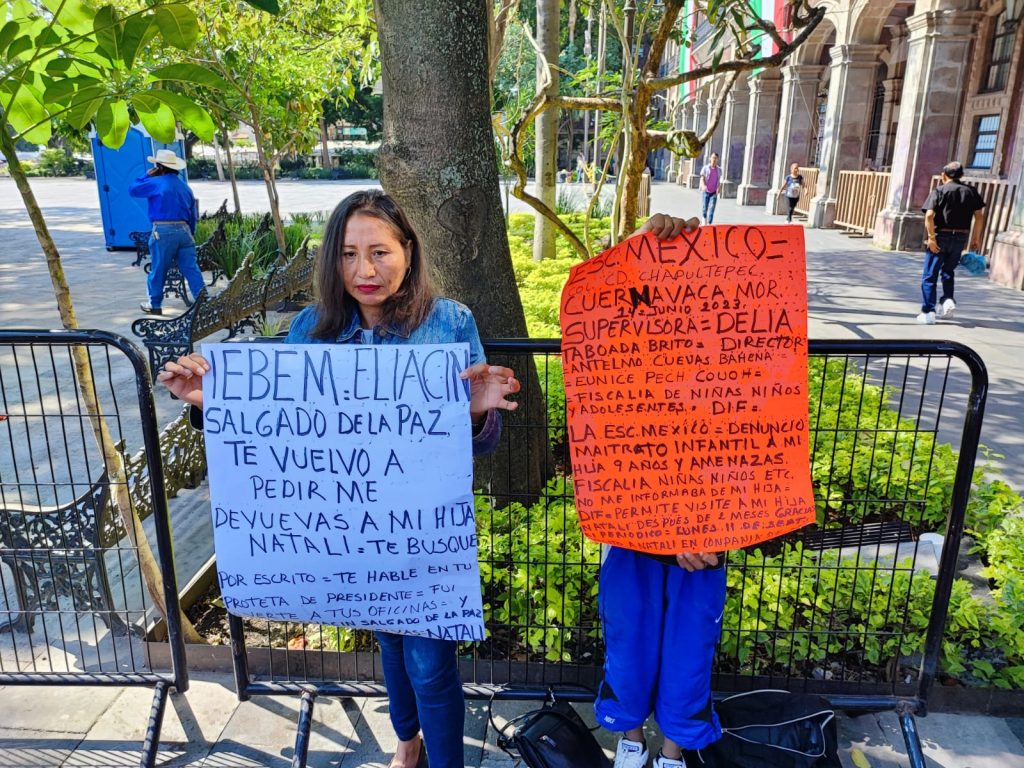 IEBEM = ELIACIN
SALGADO DE LA PAZ
TE VUELVO A
PEDIR ME
DEVUEVAS A MI HIJA
NATALI = TE BUSQUE
POR ESCRITO = TE HABLE EN TU
PROTETA DE PRESIDENTE = FUI
A VERTE A TUS OFICINAS = Y
SALGADO DE LA PAZ
NATALI
ESC. MEXICO =
COL. CD. CHAPULTEPEC.
CUERNAVACA MOR.
14 = JUNIO 2023.
SUPERVISORA = DELIA
TABOADA BRITO = DIRECTOR
ANTELMO CUEVAS BAHENA =
= EUNICE PECH COUOH =
FISCALIA DE NIÑAS NIÑOS
Y ADOLESENTES. DIF =
LA ESC. MEXICO = DENUNCIO
MAITRATO INFANTIL A MI
HIJA 9 AÑOS Y AMENAZAS.
FISCALIA NIÑAS NIÑOS ETC.
NO ME INFORMABA DE MI HIJA =
DIF = PERMITE VISITE A MI HIJA
NATALI DESPUES DE 2 MESES GRACIAS
PERIODICO = LUNES. 11 DE = SEPT
A NATALI EN COMPANIA
NIKE